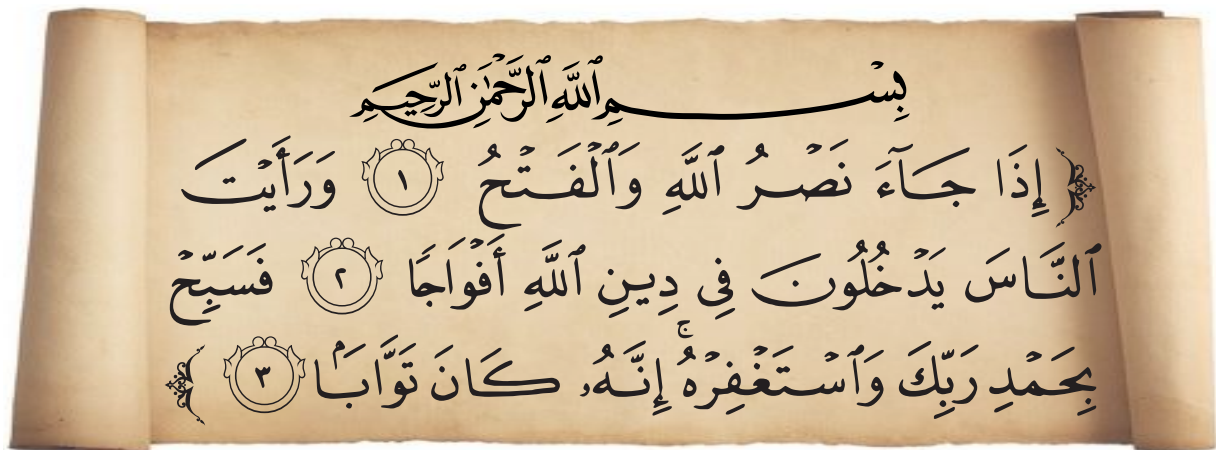 بِسْمِ ٱللَّهِ ٱلرَّحْمَٰنِ ٱلرَّحِيمِ
﴿ إِذَا جَآءَ نَصْرُ ٱللَّهِ وَٱلْفَتْحُ ١ وَرَأَيْتَ
ٱلنَّاسَ يَدْخُلُونَ فِى دِينِ ٱللَّهِ أَفْوَاجًا ٢ فَسَبِّحْ
بِحَمْدِ رَبِّكَ وَٱسْتَغْفِرْهُ ۚ إِنَّهُۥ كَانَ تَوَّابَۢا ٣ ﴾